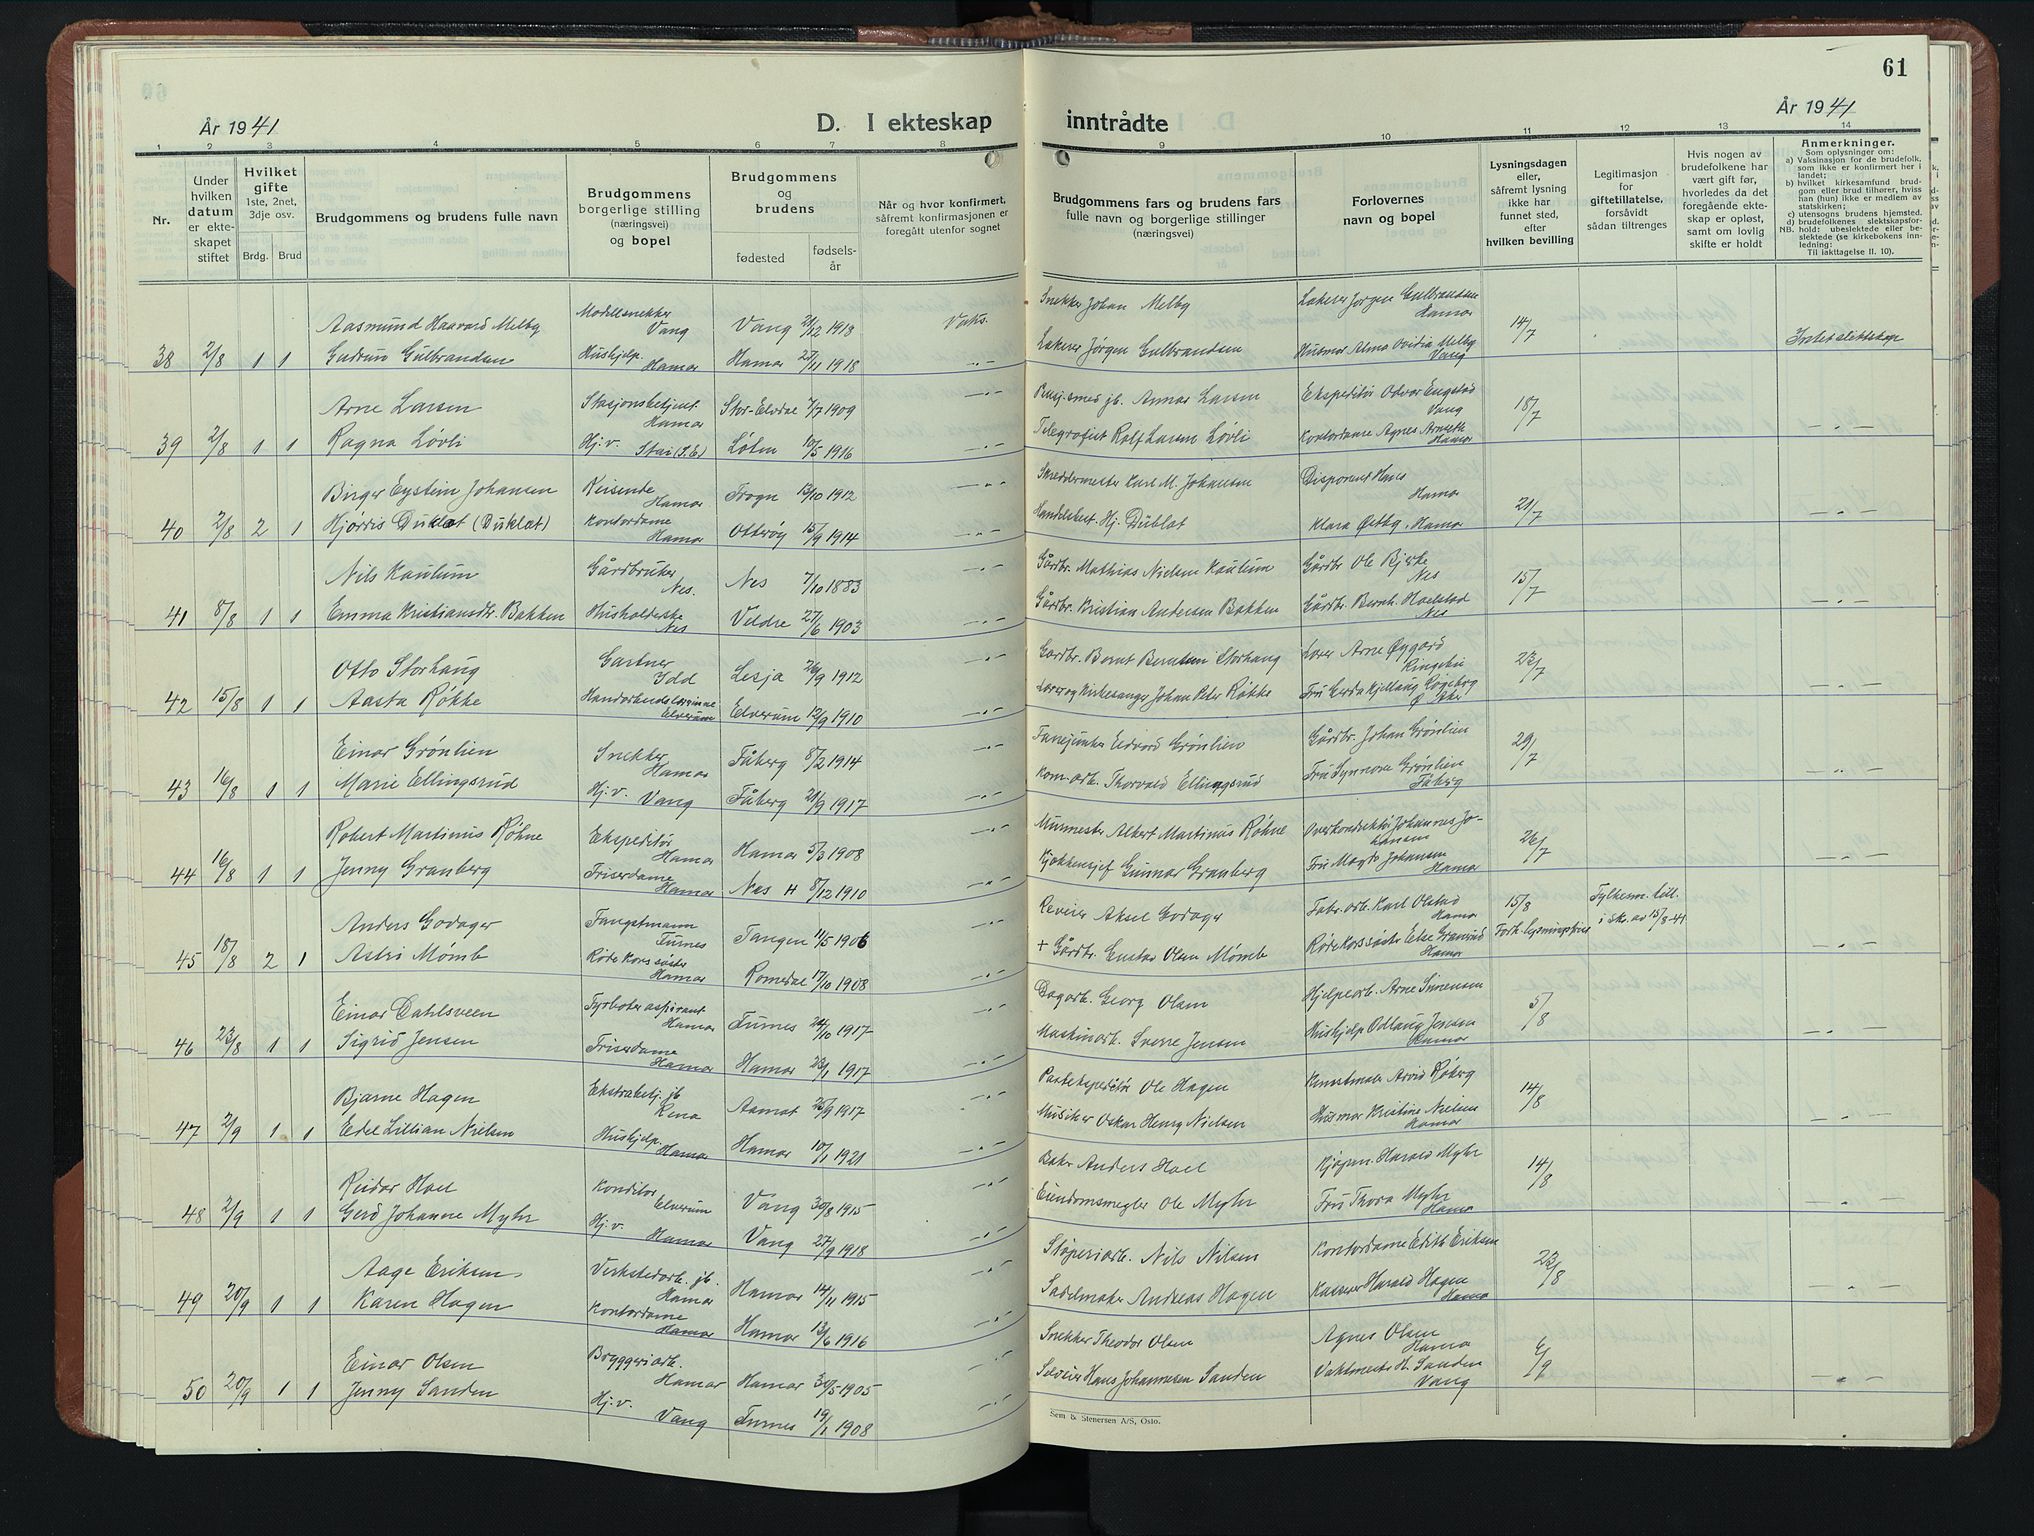 61
År 1941
D. I ekteskap inntrådte
År 1941
1 2 3 4 5 6 7 8 9 10 11 12 13 14
Nr.
Under hvilken datum er ekteskapet stiftet
Hvilket gifte 1ste, 2net, 3dje osv.
Brdg. Brud
Brudgommens og brudens fulle navn
Brudgommens borgerlige stilling (næringsvei) og bopel
Brudgommens og brudens
fødested
fødselsår
Når og hvor konfirmert, såfremt konfirmasjonen er foregått utenfor sognet
Brudgommens fars og brudens fars fulle navn og borgerlige stillinger (næringsvei)
Forlovernes navn og bopel
Lysningsdagen eller, såfremt lysning ikke har funnet sted, efter hvilken bevilling
Legitimasjon for giftetillatelse, forsåvidt sådan tiltrenges
Hvis nogen av brudefolkene har vært gift før, hvorledes da det foregående ekteskap er opløst, samt om lovlig skifte er holdt
Anmerkninger.
Som oplysninger om:
a) Vaksinasjon for de brudefolk, som ikke er konfirmert her i landet;
b) hvilket kirkesamfund brudgom eller brud tilhører, hviss han (hun) ikke er medlem av statskirken;
c) utensogns brudens hjemsted.
d) brudefolkenes slektskapsforhold: ubeslektede eller beslektede (se kirkebokens innledning:
NB. Til iakttagelse II. 10).
Aasmund Haavard Melby Modellsnekker Vang Vang 21/12 1913 Vaks. Snekker Johan Melby Lakerer Jørgen Gulbrandsen Hamar 14/7
38 2/8 1 1 Gudrun Gulbrandsen Hushjelp. Hamar Hamar 27/11 1918 -"- Lakerer Jørgen Gulbrandsen Husmor Alma Ovidia Melby Vang Intet slektskap
Arne Larsen Stasjonsbetjent Hamar Stor-Elvdal 7/7 1909 -"- Pensj. smed jb. Anmar Larsen Ekspeditør Otvar Engstad Vang 18/7
39 2/8 1 1 Ragna Løvli Hj. v. Stai (S.E.) Løten 10/5 1916 -"- Telegrafist Rolf Larsen Løvli Kontordame Agnes Arneth Hamar -"-
Birger Eystein Johansen Reisende Hamar Frogn 13/10 1912 -"- Skreddermester Karl M. Johansen Disponent Hans Hamar 21/7
40 2/8 2 1 Hjørris Duklæt (Duklæt) Kontordame Hamar Otterøy 15/9 1914 -"- Handelsbest. Hj. Dublæt Klara Østby, Hamar -"-
Nils Kaulum Gårdbruker Nes. Nes 7/10 1883 Gårdbr. Mathias Nielsen Kaulum Gårdbr. Ole Bjerke Nes 15/7
41 8/8 1 1 Emma Kristiansdtr. Bakken Husholderske Nes Veldre 27/6 1903 -"- Gårdbr. Kristian Andersen Bakken Gårdbr. Bernh. Hoelstad Nes -"-
Otto Storhaug Gartner Idd Lesja 26/9 1912 -"- Gårdbr. Bernt Berntsen Storhaug Lærer Arne Øygard Ringebu 23/7
42 15/8 1 1 Aasta Røkke Handarbeidslærerinne Elverum Elverum 12/9 1910 -"- Lærer og Kirkesanger Johan Peter Røkke Fru Gerda Kjellaug -"-
Einar Grønlien Snekker Hamar Fåberg 8/2 1914 -"- Fanejunker Edvard Grønlien Gårdbr. Johan Grønlien 29/7
43 16/8 1 1 Marie Ellingsrud Hj. v. Vang Fåberg 21/9 1917 -"- Kom. arb. Thorvald Ellingsrud Fru Synnøve Grønlien Fåberg -"-
Robert Martinus Røhne Ekspeditør Hamar Hamar 5/3 1908 -"- Murmester Albert Martinus Røhne Overkonduktør Johannes Johansen 26/7
44 16/8 1 1 Jenny Granberg Friserdame Hamar Nes H 8/12 1910 -"- Kjøkkensjef Gunnar Granberg Fru Magda Johansen Hamar -"-
Anders Godager Fangstmann Furnes Tangen 11/5 1906 -"- Revier Aksel Godager Fabr. arb. Karl Olstad Hamar 15/8 Forh. lysningsfrist Fylkesm. till. i sk. av 15/8-41
45 18/8 2 1 Astri Mømb Røde Kors søster Hamar Romedal 17/10 1908 -"- + Gårdbr. Gustav Olsen Mømb Røde Kors søster Else Granrud Hamar -"-
Einar Dahlsveen Fyrbøter aspirant Hamar Furnes 24/10 1917 -"- Dagarb. Georg Olsen Hjelpearb. Arne Simensen 5/8
46 23/8 1 1 Sigrid Jensen Friserdame Hamar Hamar 23/1 1917 -"- Maskinarb. Sverre Jensen Hushjelp Odlaug Jensen Hamar -"-
Bjarne Hagen Ekstrabetj. jb. Rena Aamot 25/9 1917 -"- Pakkekspeditør Ole Hagen Kunstmaler Arvid Røberg 14/8
47 2/9 1 1 Edel Lillian Nielsen Hushjelp. Hamar Hamar 10/1 1921 -"- Musiker Oskar Henry Nielsen Husmor Kristine Nielsen Hamar -"-
Reidar Hoel Konditor Elverum Vang 30/8 1915 -"- Baker Anders Hoel Kjøpm. Harald Myhr 14/8
48 2/9 1 1 Gerd Johanne Myhr Hj. v. Hamar Vang 27/9 1918 -"- Eiendomsmegler Ole Myhr Fru Thora Myhr Hamar -"-
Aage Eriksen Verkstedarb. jb. Hamar Hamar 14/11 1915 -"- Støperiarb. Nils Nilsen Kontordame Edith Eriksen 23/8
49 20/9 1 1 Karen Hagen Kontordame Hamar Hamar 13/6 1916 -"- Sadelmaker Andreas Hagen Kasserer Harald Hagen Hamar -"-
Einar Olsen Bryggeriarb. Hamar Hamar 30/5 1905 -"- Snekker Theodor Olsen Agnes Olsen Hamar 6/9
50 20/9 1 1 Jenny Sanden Hj. v. Vang Furnes 19/1 1908 -"- Selveier Hans Johannesen Sanden Vaktmester H. Sanden Vang -"-
Sem & Stenersen A/S, Oslo.